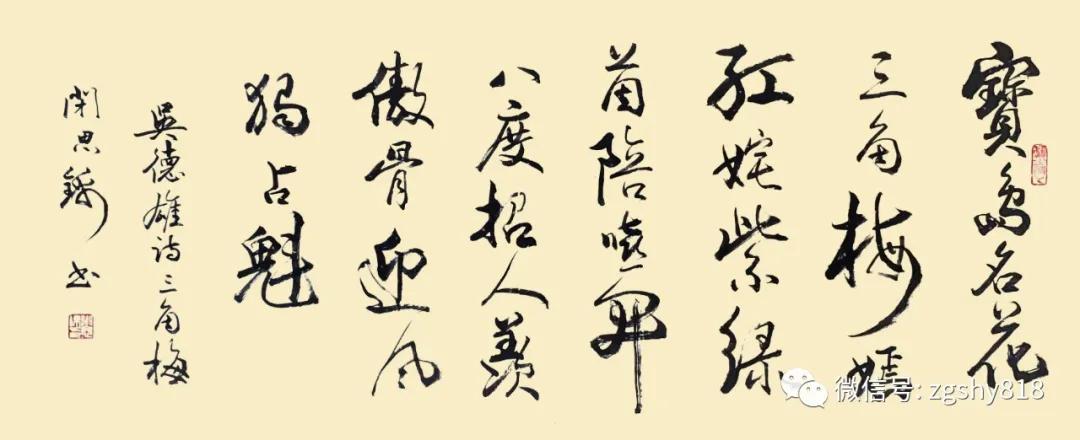 寶島名花
三角梅嫣
紅姹紫綠
茵陪曉開
八度招人羨
傲骨迎风
獨占魁
吳德雄诗三角梅
閑思錦书
微信号: zgshy818